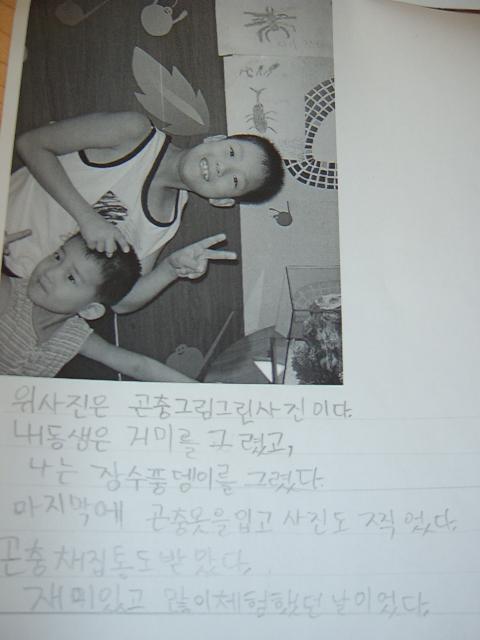 위사진은 곤충그림그린사진이다.
내동생은 거미를 그렸고,
나는 장수풍뎅이를 그렸다.
마지막에 곤충옷을입고 사진도 찍었다.
곤충채집통도받았다.
재미있고 많이체험했던날이었다.